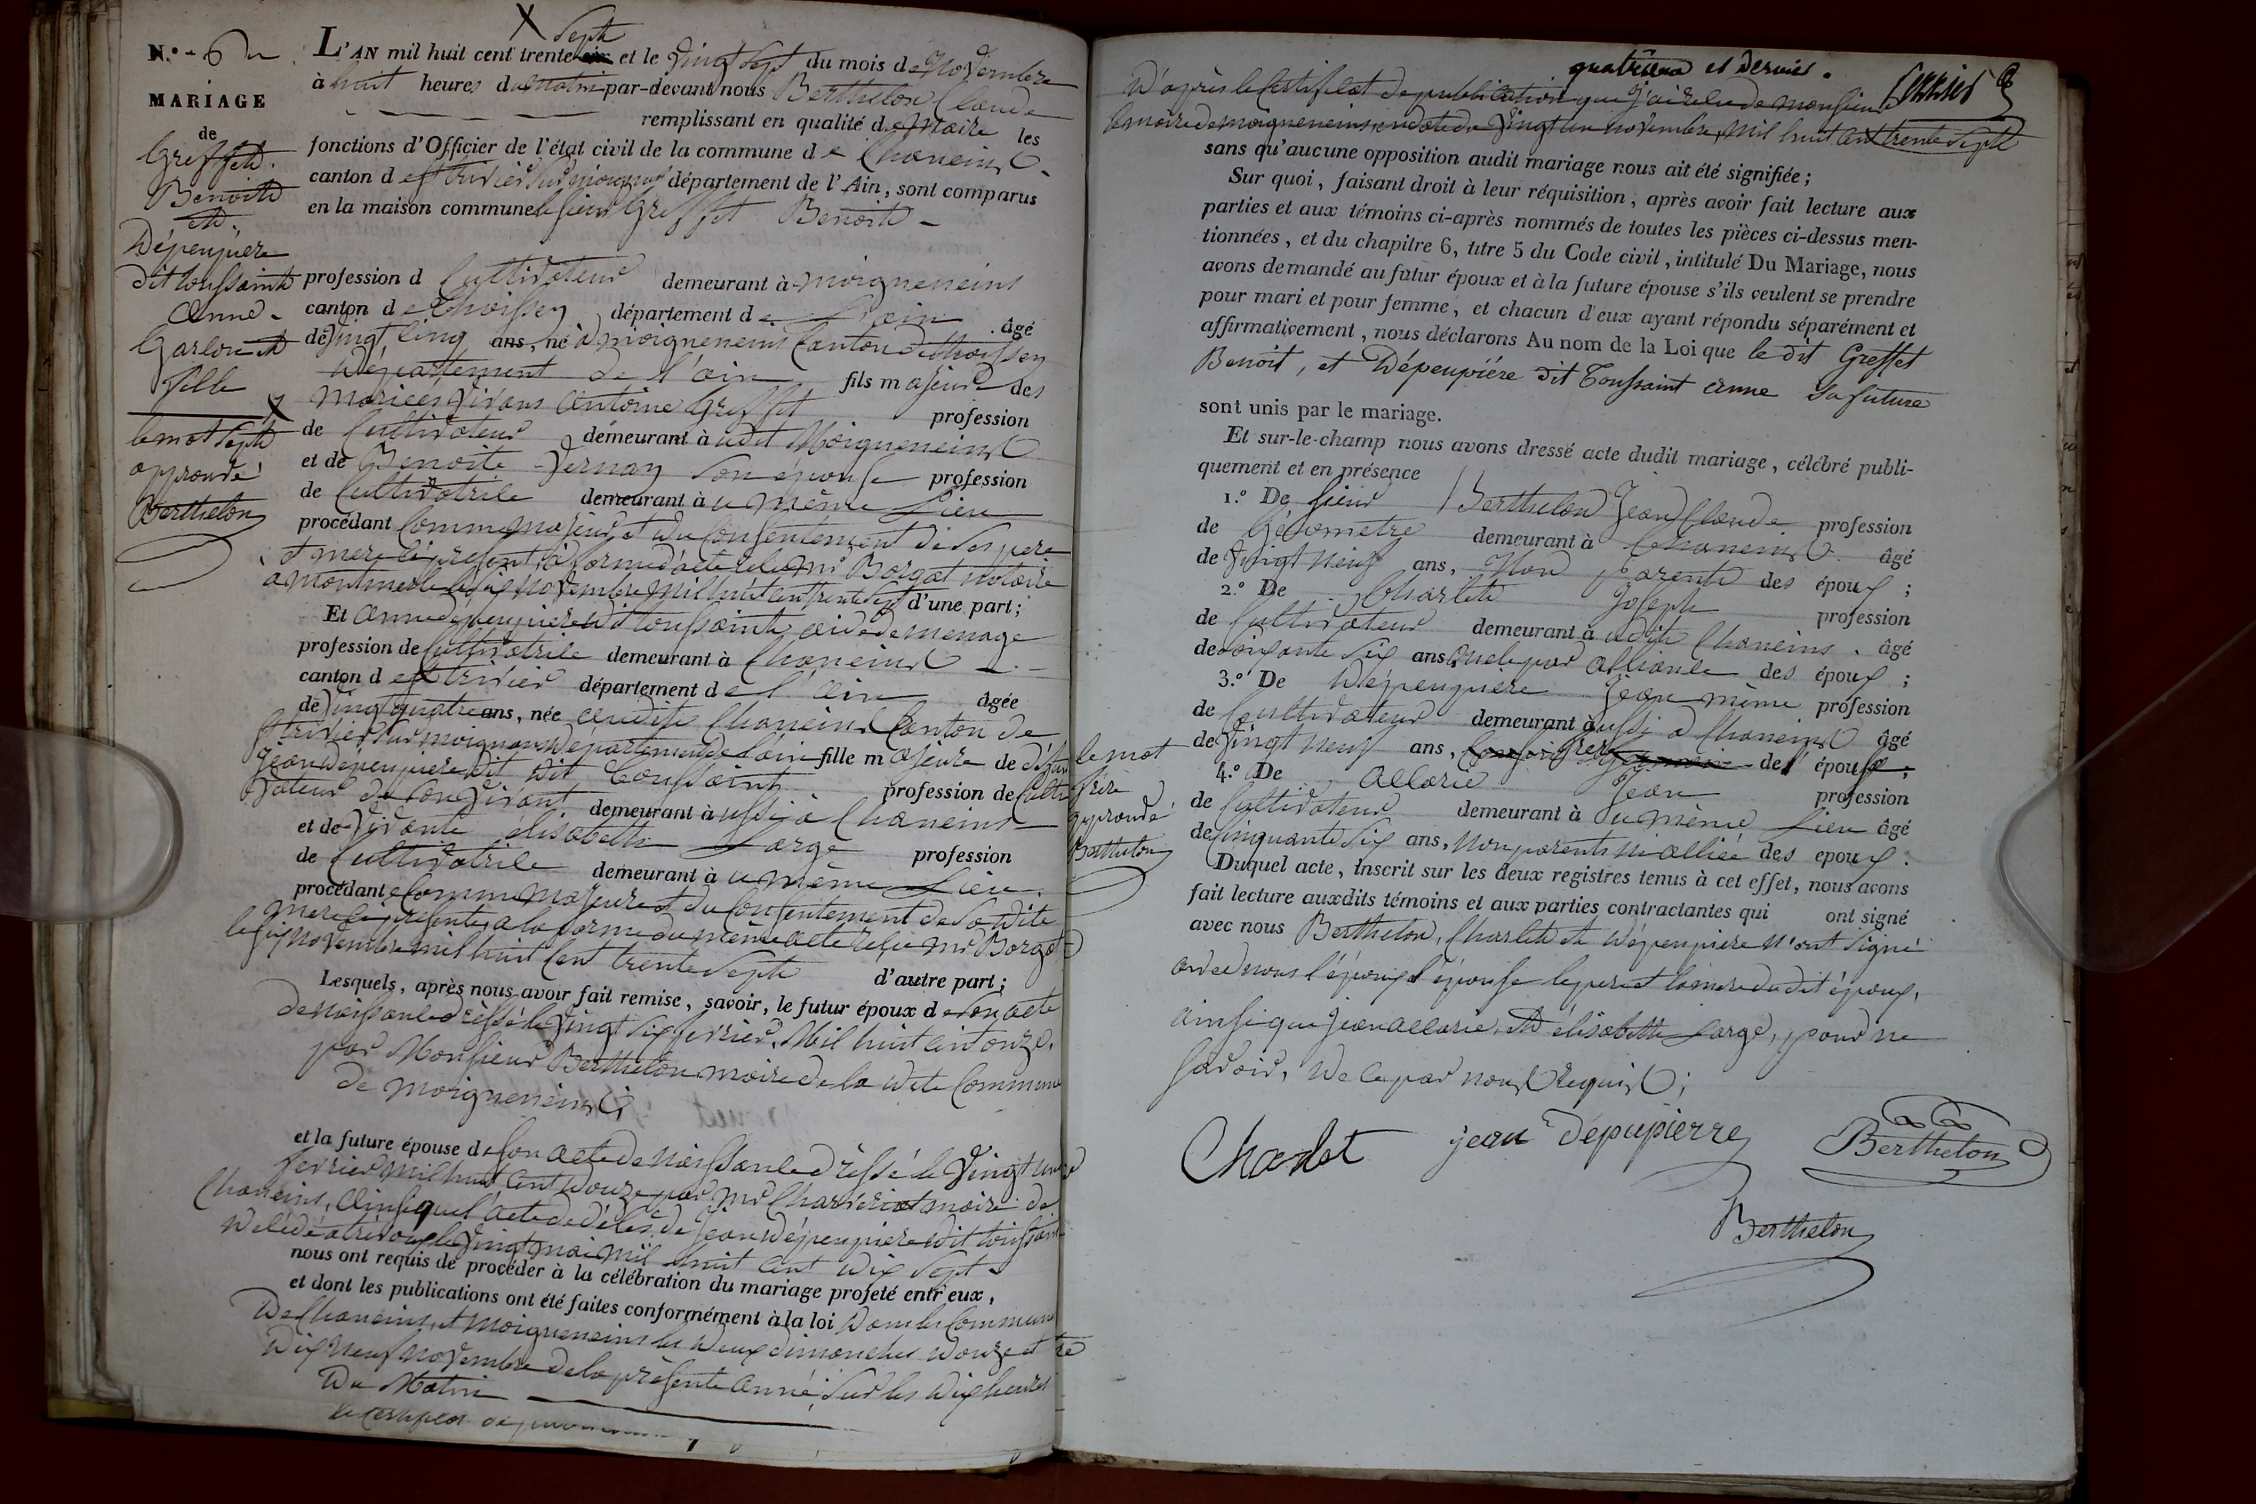 N.° 6
MARIAGE
de
Greffet
Benoit
et
Dépeupière
dit toussaint
Anne
Garlon et
fille
X
le mot Sept
approuvé
Berthelon
X Sept
L'AN mil huit cent trente six et le vingt sept du mois de Novembre
à huit heures du matin par-devant nous Berthelon Claude
remplissant en qualité de Maire les
fonctions d'Officier de l'état civil de la commune de Chaneins
canton de st trivier sur moignans département de l'Ain, sont comparus
en la maison commune le sieur Greffet Benoit
profession d Cultivateur demeurant à moigneneins
canton de thoissey département de l'ain âgé
de vingt cinq ans, né à moigneneins Canton de thoissey
Département de l'ain fils majeur des
mariees vivans Antoine Greffet profession
de Cultivateur demeurant à udit Moigneneins
et de Benoite Vernay son épouse profession
de Cultivatrice demeurant à u même Lieu
procédant Comme majeur et du Consentement de ses pere
et mere ici présent, à forme d'acte reçu Mr Borgat notaire
a montmerle le six novembre mil huit cent trente sept d'une part;
Et Anne dépeupière dit toussaint, aide de menage
profession de Cultivatrice demeurant à Chaneins
canton de st trivier département de l'ain âgée
de vingt quatre ans, née audit Chaneins Canton de
st trivier sur moignans département de l'ain fille majeure de défunt
Jean dépeupière dit dit Toussaint profession de Culti
vateur de son vivant demeurant à ussi à Chaneins
et de vivante élisabeth Large profession
de Cultivatrice demeurant à u même Lieu
procédant Comme majeure et du Consentement de sadite
mere ici présente, a la forme du même acte reçu Mr Borgat
le six novembre mil huit Cent trente Sept d'autre part;
Lesquels, après nous avoir fait remise, savoir, le futur époux de son acte
de naissance dréssé le vingt six fevrier, Mil huit cent onze.
par Monsieur Berthelon maire de la dite Commune
de moigneneins;
et la future épouse de son acte de naissance dréssé le vingt un
fevrier mil huit cent douze par Mr Charrériat maire de
Chaneins, Ainsi que l'acte de décès de Jean dépeupière dit toussaint
décédé à trévoux le vingt mai mil huit cent dix sept
nous ont requis de procéder à la célébration du mariage projeté entr'eux,
et dont les publications ont été faites conformément à la loi dans les Communes
de Chaneins et moigneneins les deux dimanches douze et
dix neuf novembre de la présente année, sur les dix heures
du Matin
quatrième et dernier.
D'après le Certificat de publication que j'ai reçu de monsieur
le maire de moigneneins, en date du vingt un novembre, mil huit cent trente sept
sans qu'aucune opposition audit mariage nous ait été signifiée;
Sur quoi, faisant droit à leur réquisition, après avoir fait lecture aux
parties et aux témoins ci-après nommés de toutes les pièces ci-dessus men-
tionnées, et du chapitre 6, titre 5 du Code civil, intitulé Du Mariage, nous
avons demandé au futur époux et à la future épouse s'ils veulent se prendre
pour mari et pour femme, et chacun d'eux ayant répondu séparément et
affirmativement, nous déclarons Au nom de la Loi que le dit Greffet
Benoit, et Dépeupiére dit Toussaint Anne Sa future
sont unis par le mariage.
Et sur-le-champ nous avons dressé acte dudit mariage, célébré publi-
quement et en présence
1.° De sieur Berthelon Jean Claude profession
de Géometre demeurant à Chaneins âgé
de vingt neuf ans, Non parente des époux;
2.° De Charlet Joseph profession
de Cultivateur demeurant à udit Chaneins âgé
de soixante six ans oncle par alliance des époux;
3.° De Dépeupière Jean même profession
de Cultivateur demeurant aussi à Chaneins âgé
de vingt neuf ans, frere des époux;
4.° De Allarie Jean profession
de Cultivateur demeurant à u même Lieu âgé
de Cinquante six ans, non parent ni alliée des epoux.
le mot
frère
approuvé
Berthelon
Duquel acte, inscrit sur les deux registres tenus à cet effet, nous avons
fait lecture auxdits témoins et aux parties contractantes qui ont signé
avec nous Berthelon, Charlet et Dépeupière n'ont signé
avec nous l'époux l'épouse le pere et la mere du dit époux,
ainsi que Jean allarie, et élisabeth Large, pour ne
savoir, de ce par nous requis;
Charlet
jean Depupierre
Berthelon
Berthelon